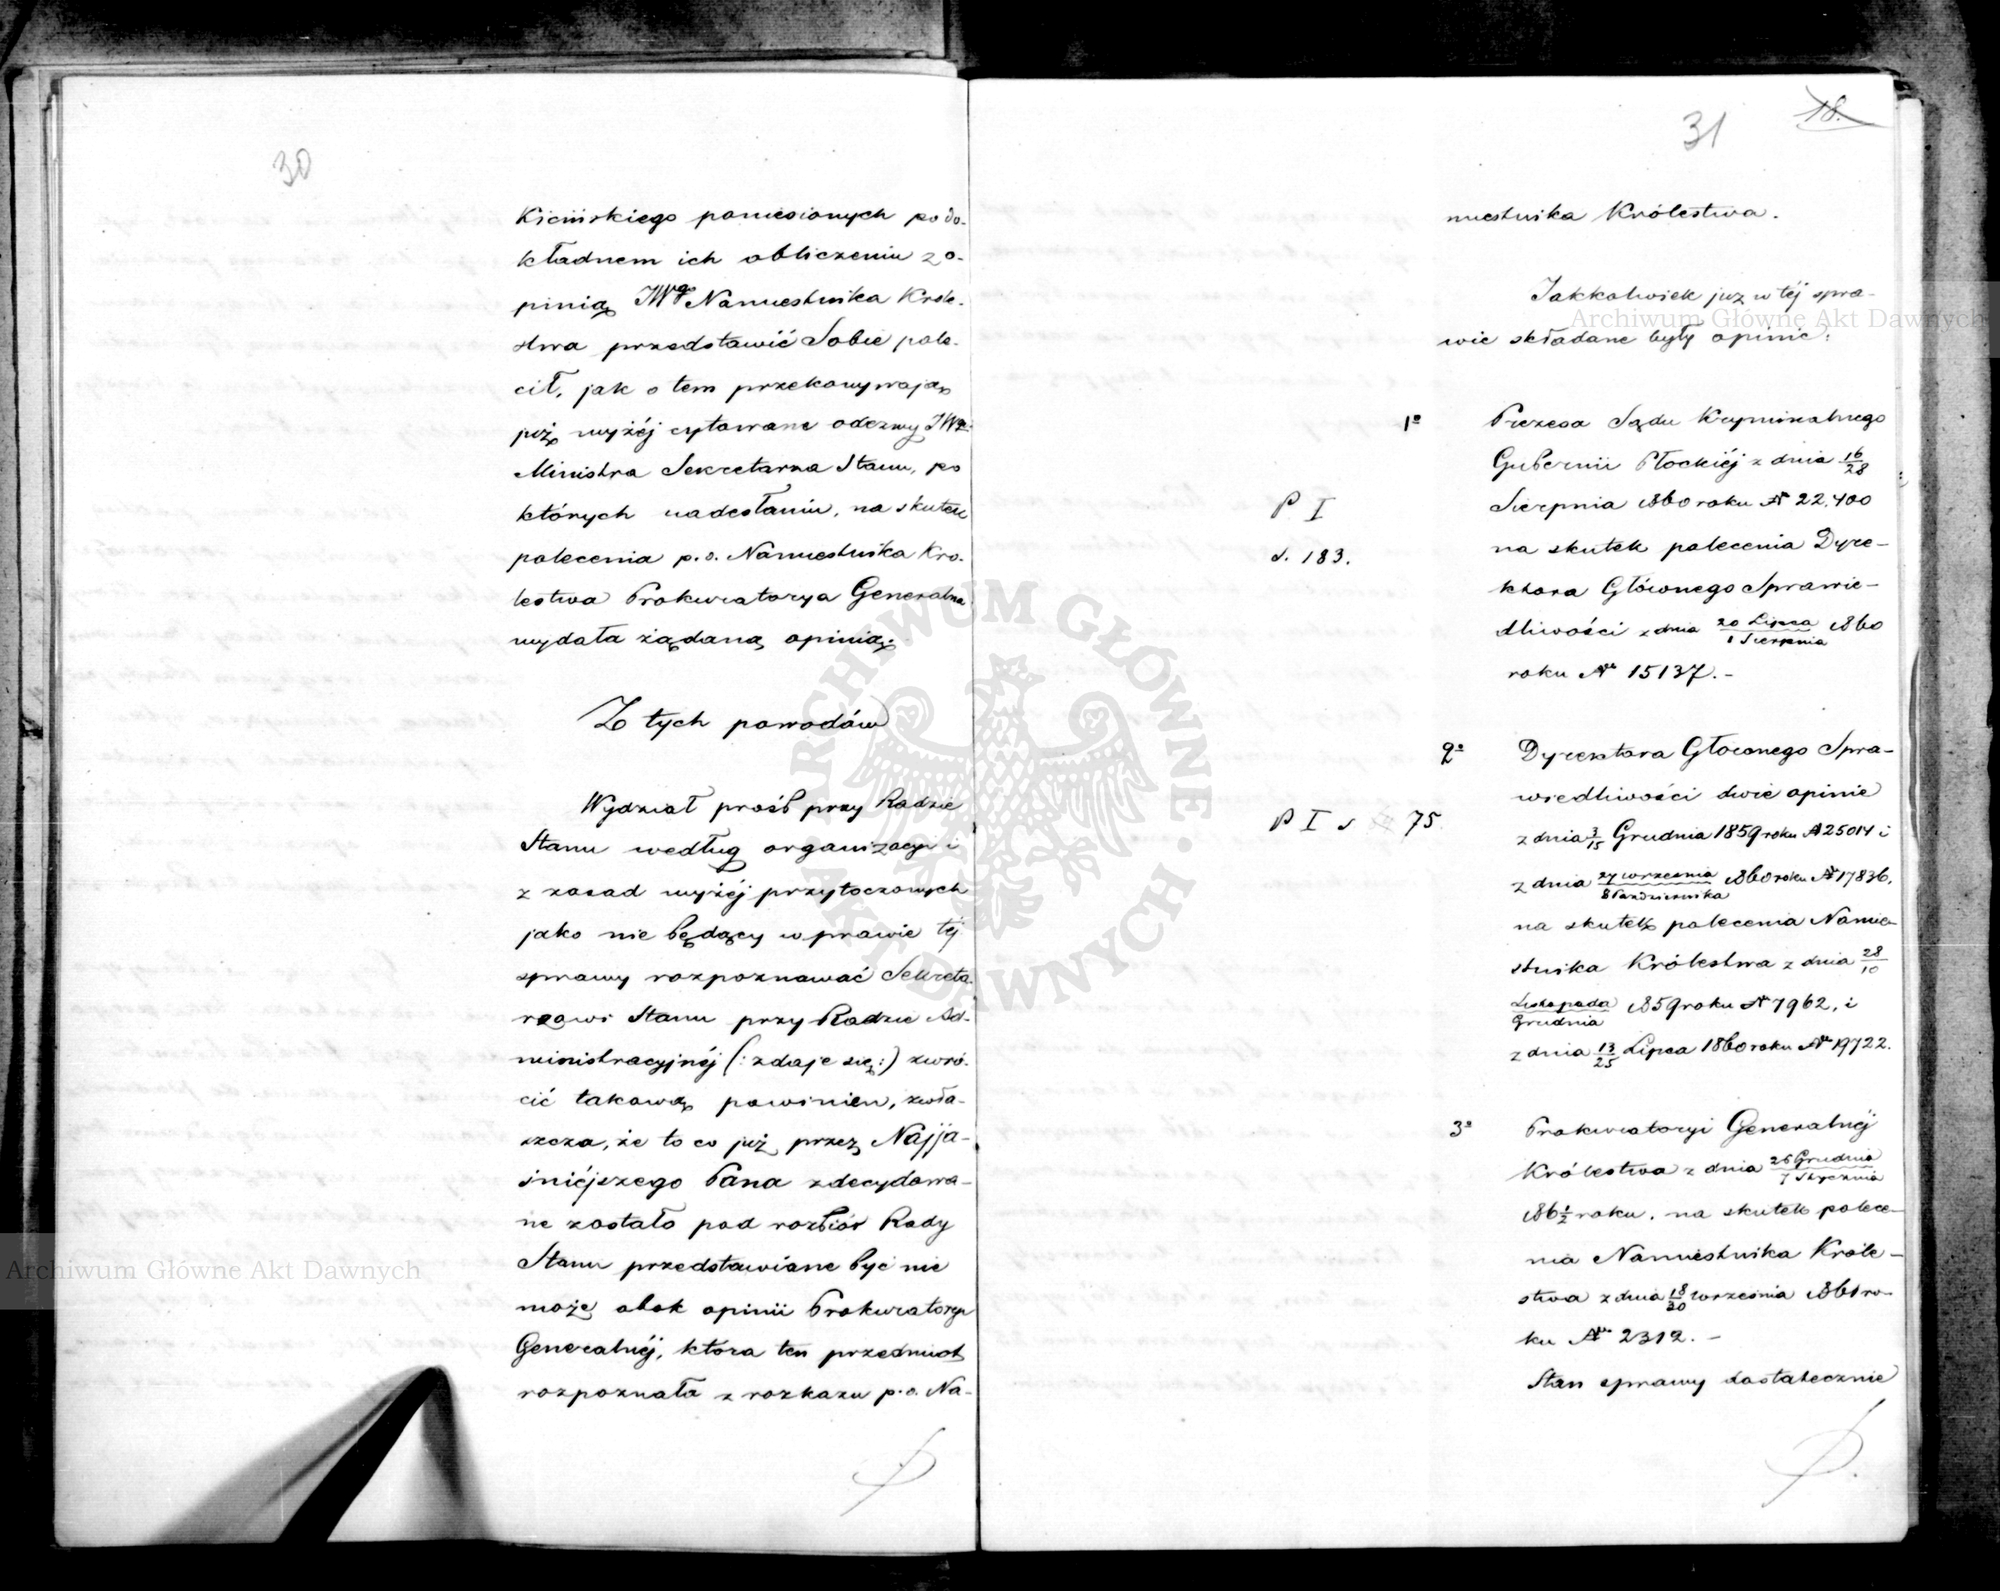 30
Kicińskiego poniesionych po do-
kładnem ich obliczeniu z o-
pinią JWgo Namiestnika Króle-
stwa przedstawić Sobie pole-
cił, jak o tem przekonywają
już wyżéj cytowane odezwy JWgo
Ministra Sekretarza Stanu, po
których nadesłaniu, na skutek
polecenia p.o. Namiestnika Kró-
lestwa Prokuratorya Generalna
wydała żądaną opinią.
Z tych powodów
Wydział próśb przy Radzie
Stanu według organizacyi i
z zasad wyżéj przytoczonych
jako nie będący w prawie téj
sprawy rozpoznawać Sekreta-
rzowi Stanu przy Radzie Ad-
ministracyjnéj (: zdaje się :) zwró-
cić takową powinien, zwła-
szcza, że to co już przez Najja-
śniéjszego Pana zdecydowa-
ne zostało pod rozbiór Rady
Stanu przedstawiane być nie
może obok opinii Prokuratoryi
Generalnéj, która ten przedmiot
rozpoznała z rozkazu p.o. Na-
31
18.
miestnika Królestwa.
Jakkolwiek już w téj spra-
wie składane były opinie:
1o Prezesa Sądu Kryminalnego
Gubernii Płockiéj z dnia 16/28
P I
Sierpnia 1860 roku No 22,400
s. 183.
na skutek polecenia Dyre-
ktora Głównego Sprawie-
dliwości z dnia 20 Lipca/1 Sierpnia 1860
roku No 15137.-
2o Dyrektora Głównego Spra-
wiedliwości dwie opinie
P I s 75
z dnia 3/15 Grudnia 1859 roku No 25014 i
z dnia 27 Września/8 Października 1860 roku No 17836,
na skutek polecenia Namie-
stnika Królestwa z dnia 28/10
Listopada/Grudnia 1859 roku No 7962, i
z dnia 13/25 Lipca 1860 roku No 19722.
3o Prokuratoryi Generalnéj
Królestwa z dnia 26 Grudnia/7 Stycznia
186 1/2 roku. na skutek polece-
nia Namiestnika Króle-
stwa z dnia 18/30 Września 1861 ro-
ku No 2312.-
Stan sprawy dostatecznie
Archiwum Główne Akt Dawnych
Archiwum Główne Akt Dawnych
ARCHIWUM GŁÓWNE · AKT DAWNYCH ·